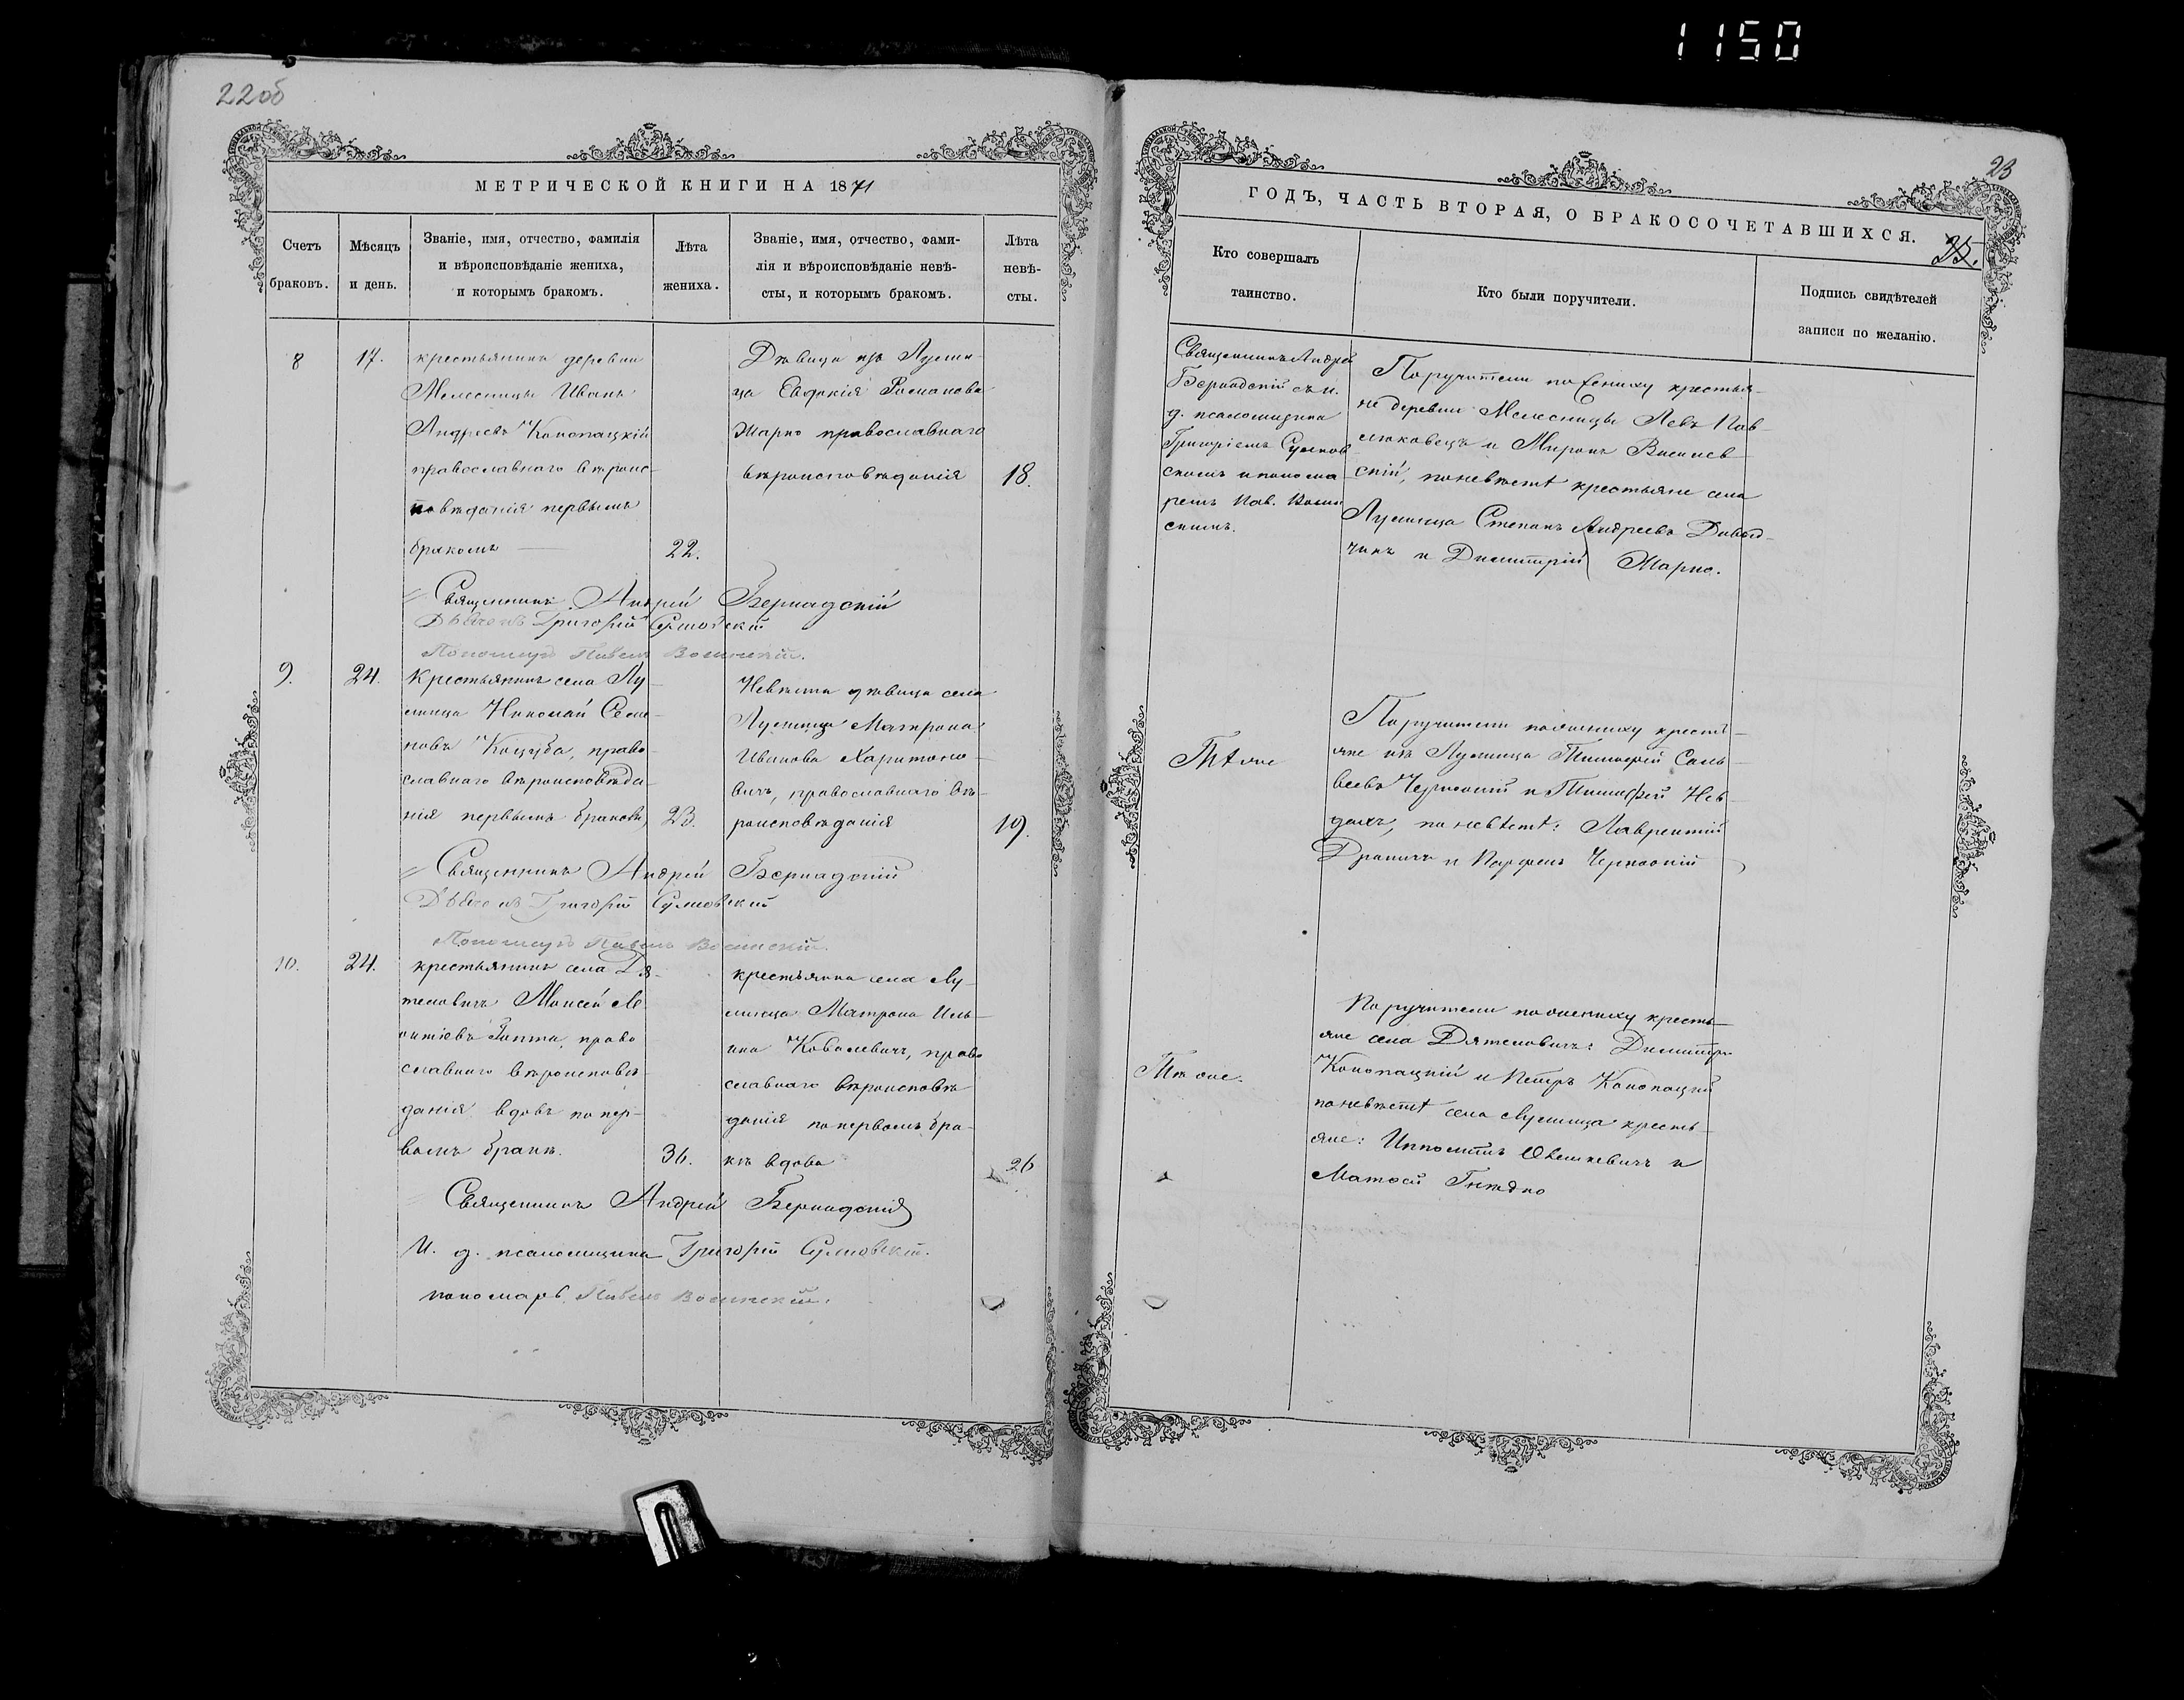 1150
22об
МЕТРИЧЕСКОЙ КНИГИ НА 1871
Счетъ браковъ.
Мѣсяцъ и день.
Званіе, имя, отчество, фамилія
и вѣроисповѣданіе жениха,
и которымъ бракомъ.
Лѣта жениха.
Званіе, имя, отчество, фами-
лія и вѣроисповѣданіе невѣ-
сты, и которымъ бракомъ.
Лѣта невѣ-
сты.
8 17.
крестьянинъ деревни
Мелесницы Иванъ
Андреевъ Конопацкій
православнаго вѣроис-
повѣданія первымъ
бракомъ
22.
Дѣвица изъ Лунин-
ца Евдокія Романова
Жарко православнаго
вѣроисповѣданія
18.
Священникъ Андрей Бернадскій
Дьячекъ Григорій
Пономарь Павелъ
9. 24.
Крестьянинъ села Лу-
нинца Николай Семе-
новъ Коцуба, право-
славнаго вѣроисповѣда-
нія первымъ бракомъ,
23.
Невѣста дѣвица села
Лунинца Матрона
Иванова Харитоно-
вичъ, православнаго вѣ-
роисповѣданія
19.
Священникъ Андрей Бернадскій
Дьячекъ Григорій
Пономарь Павелъ
10. 24.
крестьянинъ села Дя-
теловичъ Моисей Ле-
онтіевъ право
славнаго вѣроисповѣ-
данія вдовъ по пер-
вомъ бракѣ.
36.
крестьянка села Лу-
нинца Матрона Иль-
ина Ковалевичъ, право
славнаго вѣроисповѣ
данія по первомъ бра-
кѣ вдова
26
Священникъ Андрей Бернадскій
И. д. псаломщика Григорій
пономарь Павелъ
23
ГОДЪ, ЧАСТЬ ВТОРАЯ, О БРАКОСОЧЕТАВШИХСЯ.
25.
Кто совершалъ
таинство.
Кто были поручители.
Подпись свидѣтелей
записи по желанію.
Священникъ Андрей
Бернадскій съ и.
д. псаломщика
Григоріемъ
скимъ и понома
ремъ Пав.
скимъ.
Поручители по жениху крестья-
не деревни Мелесницы Левъ Пав-
люковецъ и Миронъ
скій, по невѣстѣ крестьяне села
Лунинца Степанъ Андреевъ Давыд-
чикъ и Димитрій Жарко.
Тѣ же
Поручители по жениху кресть-
яне изъ Лунинца Тимофей Савь-
веевъ и Тимофей
по невѣстѣ: Лаврентій
и Парфенъ
Тѣ же.
Поручители по жениху кресть-
яне села Дятеловичъ: Димитрій
Конопацкій и Петръ Конопацкій
по невѣстѣ села Лунинца кресть-
яне: Ипполитъ и
Матвей Гнедко